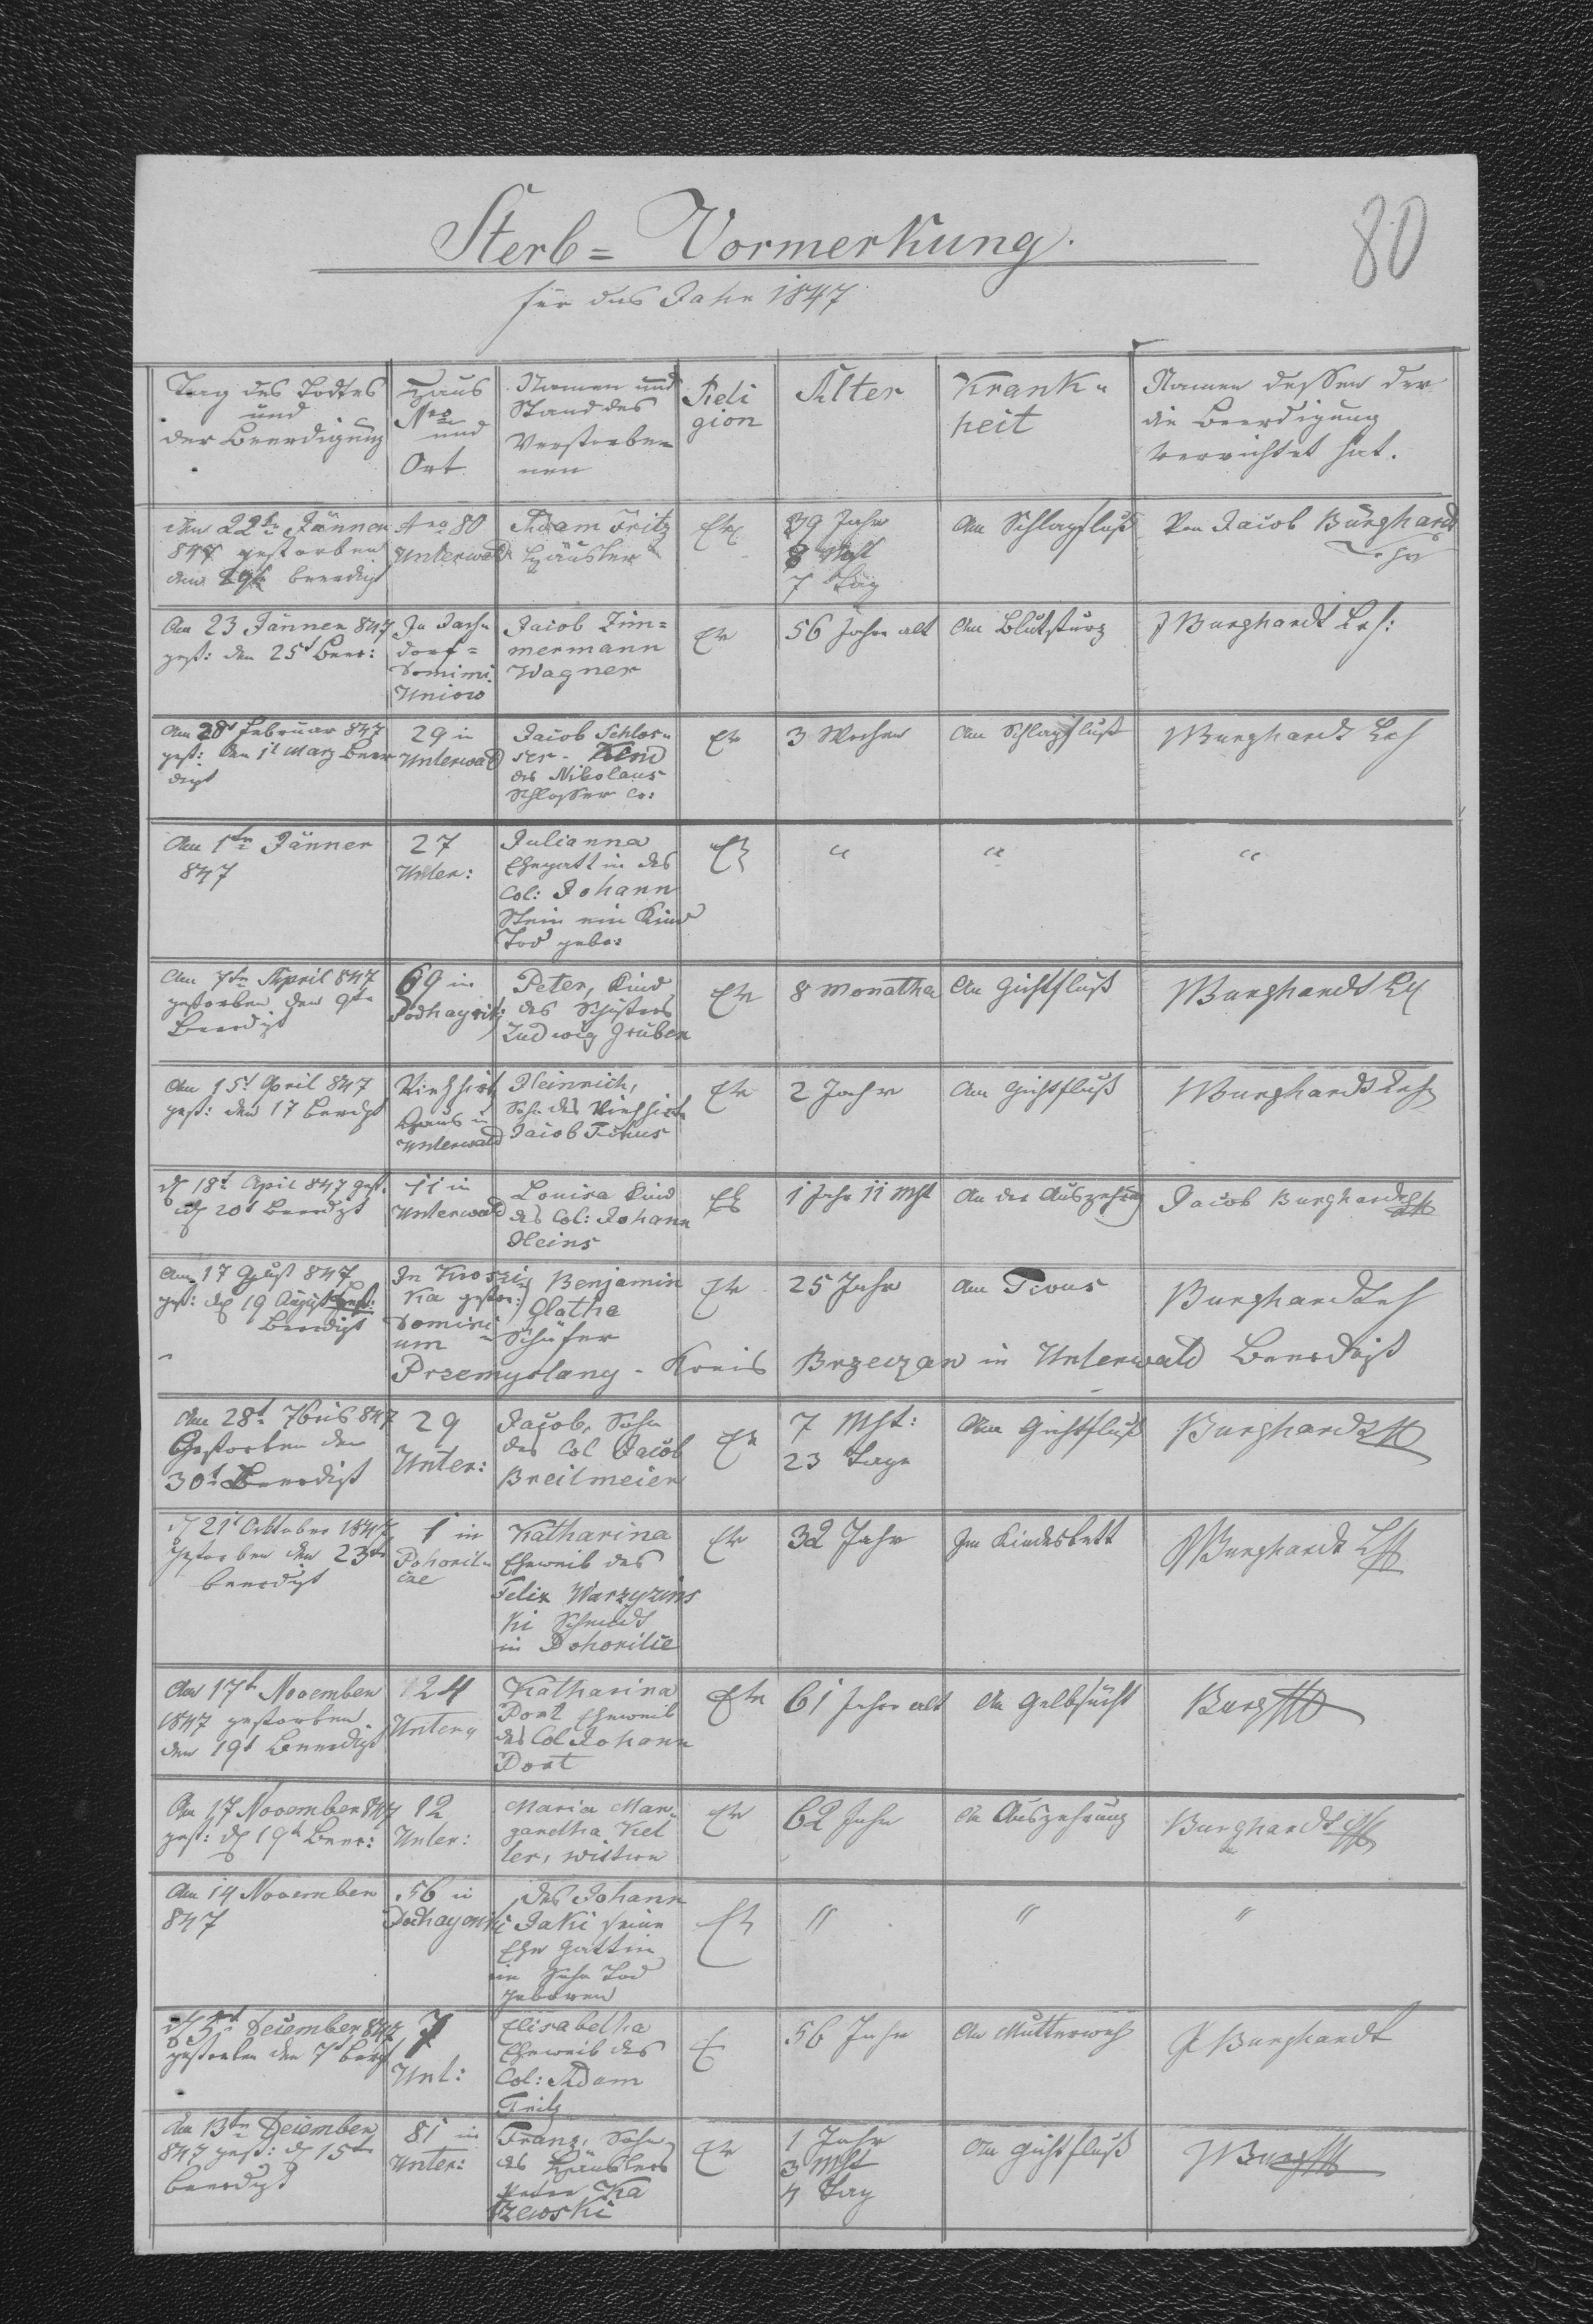 80
Sterb= Vormerkung.
für das Jahr 1847
Tag des Todtes
und
der Beerdigung
Haus
Nro
und
Ort
Namen und
Stand des
Verstorbe=
nen
Reli
gion
Alter
Krank=
heit
Namen dessen der
die Beerdigung
verrichtet hat.
Am 22tn Jänner
847 gestorben
den beerdigt
Nro 80
Unterwald
Adam Fritz
Häusler
39 Jahr
8 Mt
7 Tag
Am Schlagfluß
Von Jacob Burghardt
Am 23 Jänner 847
gest: den 25t Beer:
dorf=
Domini
Uniow
Jacob Zim=
mermann
Wagner
Ev
56 Jahr alt
Am Blutsturz
J Burghardt Leh:
Am 28t Februar 847
gest: den 1t März Beer
digt
29 in
Unterwald
Jacob Schlos=
ser - Kind
des Nikolaus
Schlosser Co:
Ev
3 Wochen
Am Schlagfluß
JBurghardt Leh
Am 1tn Jänner
847
27
Unter:
Julianna
Ehegattin des
Col: Johann
Stein ein Kind
Tod gebo:
Ev
"
"
"
Am 7tn April 847
gestorben den 9tn
Beerdigt
69 in
Peter, Kind
des Schusters
Ludwig Gruber
Ev
8 Monatha
Am Gichtfluß
JBurghardt
Am 15t April 847
gest: den 17 beerdgt
Viehhirt
Haus in
Unterwald
Heinrich,
Sohn des Viehhirt
Jacob
Ev
2 Jahr
Am Gichtfluß
JBurghardt Leh
18t April 847 gest.
20t beerdgt
11 in
Unterwald
Louisa Kind
des Col: Johann
Heins
Ev
1 Jahr 11 Mt
An der Auszehrung
Jacob Burghardt
Am 17 847
gest: 19 August
Beerdigt
In Krosien
ka gestor:
Domini
um
Benjamin
Glathe
Schäfer
Ev
25 Jahr
Am
Burghardt Leh
Przemyslany - Kreis Brzeczan in Unterwald Beerdigt
Am 28t 7bris 847
Gestorben den
30t Beerdigt
29
Unter:
Jacob, Sohn
des Col Jacob
Breitmeier
Ev
7 Mt:
23 Tage
Am Gichtfluß
Burghardt
21t October 1847
gestorben den 23tn
beerdigt
1 in
Pohoril=
ce
Katharina
Eheweib des
Felix Warzyzins
ki Schmidt
in Pohorilce
Ev
32 Jahr
Im Kindesbett
JBurghardt
Am 17t November
1847 gestorben
den 19t beerdigt
24
Unter
Katharina
Port Eheweib
des Col Johann
Port
Ev
61 Jahr alt
An Gelbsucht
Burg
Am 17 November 847
gest: 19t Beer:
12
Unter:
Maria Mar=
garetha Kel
ler, Wittwe
Ev
62 Jahr
An Auszehrung
Burghardt
Am 14 November
847
56 in
Podhayczyki
des Johann
Jaki seine
Ehe Gattin
ein Sohn Tod
geboren
Ev
"
"
"
5t December 847
gestorben den 7t
7
Unt:
Elisabetha
Eheweib des
Col: Adam
Fritz
Ev
56 Jahr
An Mutterweh
J Burghardt
Am 13tn December
847 gest: 15tn
beerdigt
81 in
Unter:
Franz, Sohn
des Häuslers
Ka
czewski
Ev
1 Jahr
3 Mt
4 Tag
Am Gichtfluß
JBurg